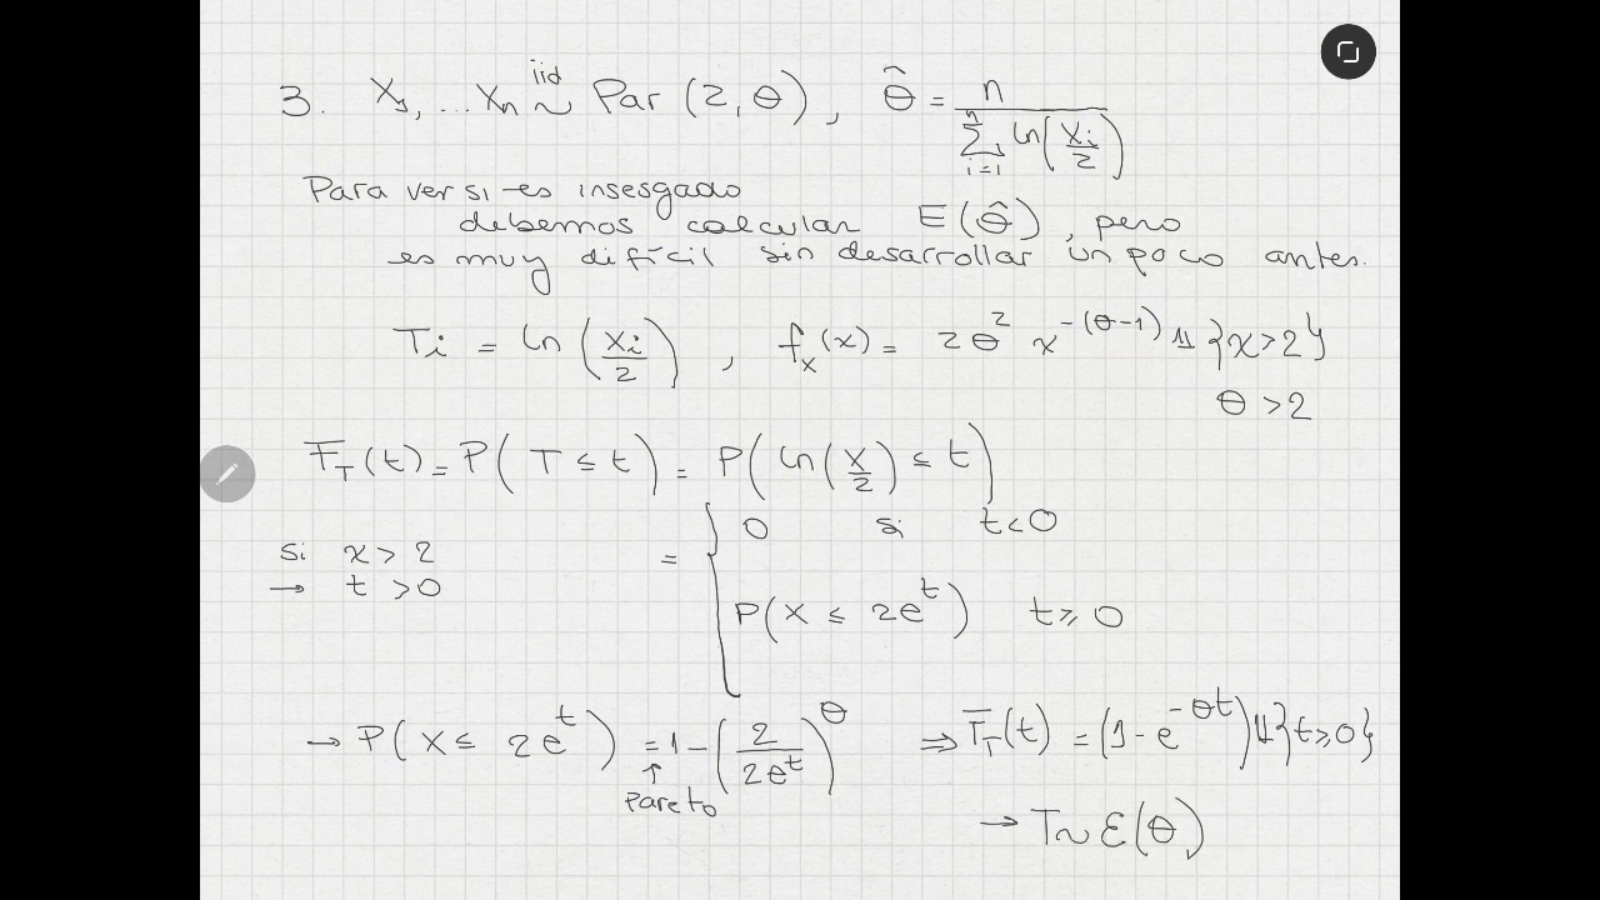 3. X₁, ... Xₙ iid ~ Par (2, θ), θ̂ = n / Σⁿᵢ₌₁ ln(Xi/2)
Para ver si es insesgado
debemos calcular E(θ̂), pero
es muy difícil sin desarrollar un poco antes.
Ti = ln (Xi/2), fₓ(x) = 2θ² x^-(θ-1) 𝟙{x>2}
θ >2
F_T(t) = P(T ≤ t) = P(ln(X/2) ≤ t)
si x > 2
→ t >0
= { 0 si t<0
P(X ≤ 2e^t) t ≥ 0
→ P(X ≤ 2e^t) = 1 - (2/2e^t)^θ ⇒ F_T(t) = (1 - e^-θt) 𝟙{t≥0}
↑
Pareto
→ T~ℰ(θ)